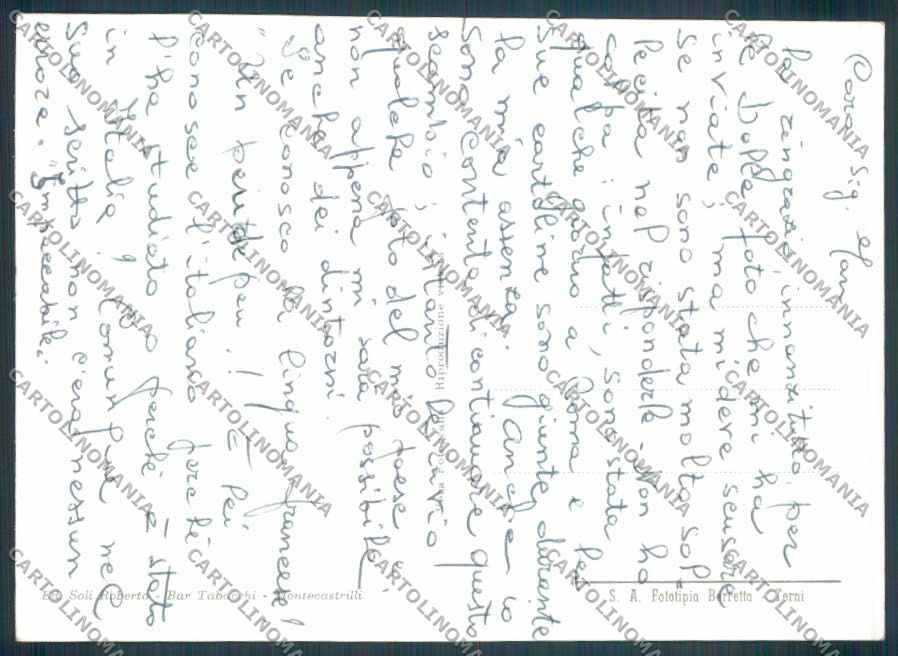 Caro sig.
La ringrazio innanzitutto per
le belle foto che mi ha
inviate; ma mi deve scusare
se non sono stata molto sol-
lecita nel risponderle. Non ho
colpa; infatti sono stata per
qualche giorno a Roma e
le sue cartoline sono giunte durante
la mia assenza. Anche io
sono contenta di continuare questo
scambio; intanto le invio
qualche foto del mio paese e,
non appena mi sarà possibile,
anche dei dintorni.
Se conosco la lingua francese?
"Un petit peu"! E Lei
conosce l'italiano perché
l'ha studiato o perché è stato
in Italia? Comunque nel
suo scritto non c'era nessun
errore. "Impeccabile".
Ed. Soli Roberto - Bar Tabacchi - Montecastrilli
S. A. Fototipia Berretta - Terni
Riproduzione
CARTOLINOMANIA